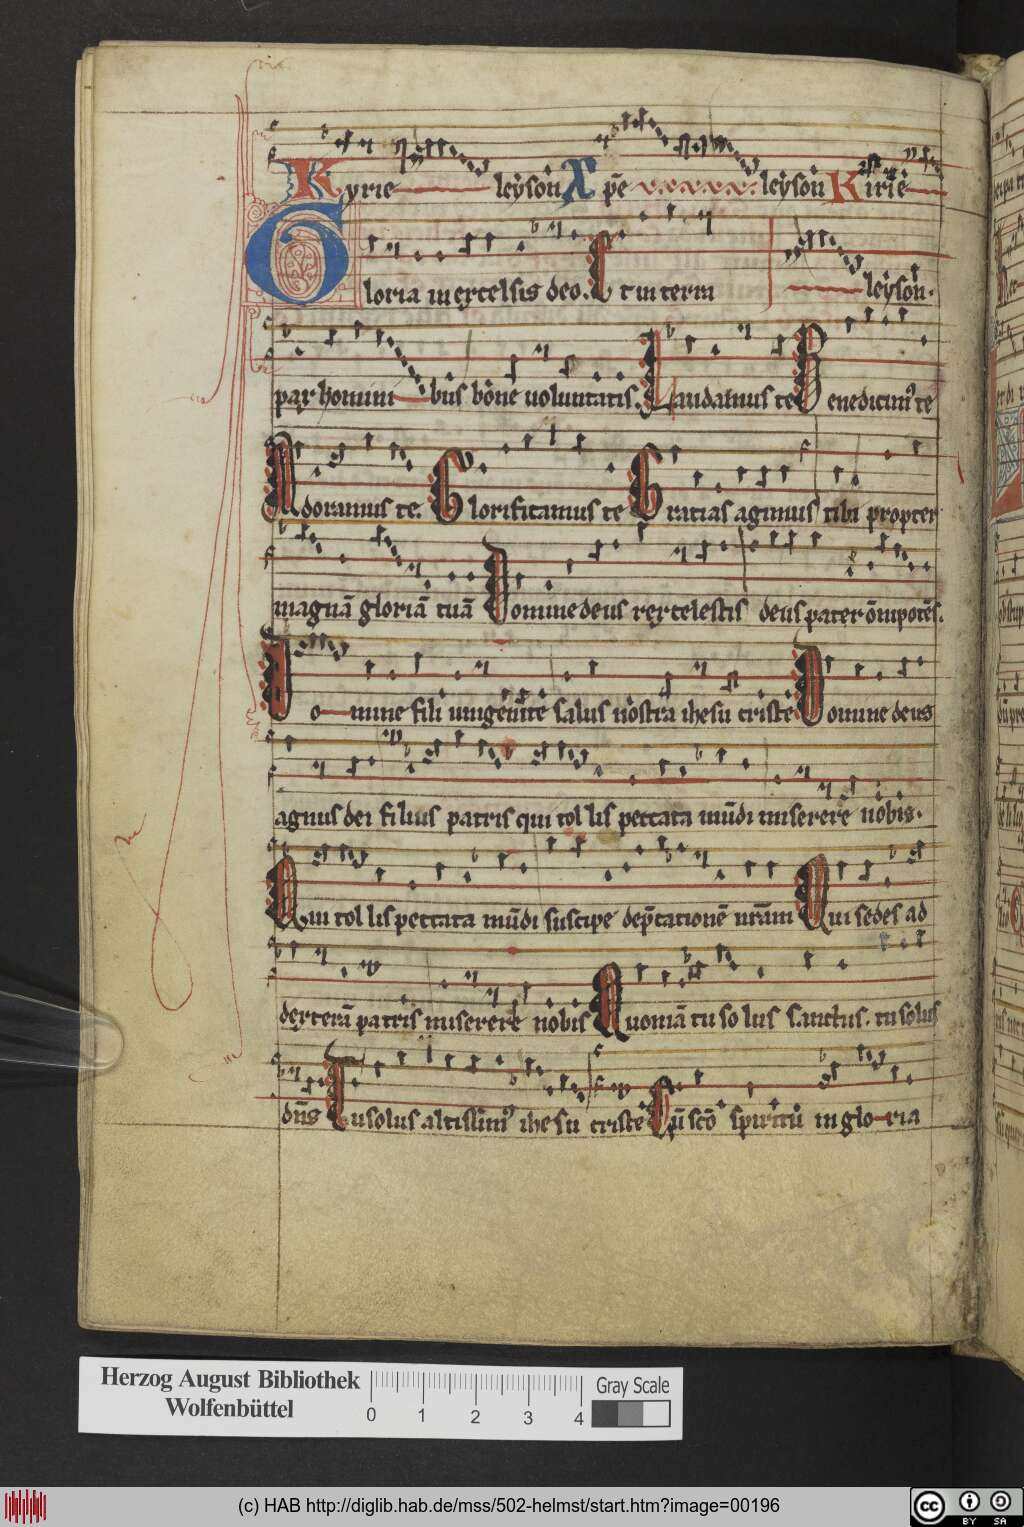 Kyrie leẏson Xp̄e leẏson Kirie
Gloria in excelsis deo. Et in terra leẏson.
pax homini bus bone uoluntatis. Laudamus te Benedicimꝰ te
Adoramus te. Glorificamus te Gratias agimus tibi propter
magnā gloriā tuā Domine deus rex celestis deus pater om̄ipotēs.
Domine fili unigenite salus nostra ihesu criste Domine deus
agnus dei filius patris qui tol lis peccata mūdi miserere nobis.
Qui tol lis peccata mūdi suscipe dep̄catione᷑ nr̄am Qui sedes ad
dexterā patris miserere nobis Quoniā tu so lus sanctus. tu solus
dn̄s Tu solus altissimꝰ ihe su criste Cū sc̄o spiritu in glo ria
Herzog August Bibliothek
Wolfenbüttel
0 1 2 3 4
Gray Scale
(c) HAB http://diglib.hab.de/mss/502-helmst/start.htm?image=00196
cc BY SA